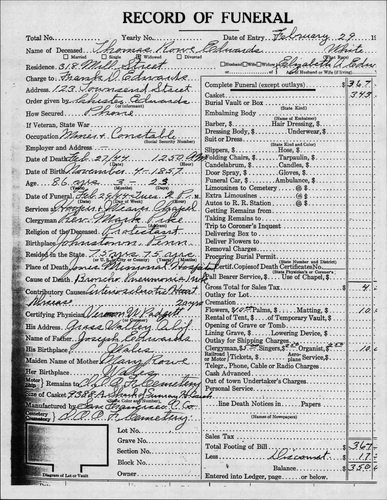 RECORD OF FUNERAL
Total No. Yearly No. Date of Entry February 29
Name of Deceased Thomas Rowe Edwards White
Married Single Widowed Divorced
Residence 318 Mill Street Elizabeth A. Edw
Charge to Frank D. Edwards
Address 123 Townsend Street
Order given by Chester Edwards
How Secured Phone
If Veteran, State War
Occupation Miner & Constable
(Social Security Number)
Employer and Address
Date of Death Feb. 27/44 12:50
Date of Birth November 4-1857
Age 86 yrs 3 23
Date of Funeral Feb 29/44
Services at Chapel
Clergyman Rev. Mark
Religion of the Deceased Protestant
Birthplace Johnstown, Penn.
Resided in the State 75 yrs. 75 yrs.
Place of Death Jones Memorial Hospital
Cause of Death Broncho Pneumonia
Contributory Causes Arteriosclerotic Heart
Disease 20 yrs
Certifying Physician Vernon W. Padgett
His Address Grass Valley Calif.
Name of Father Joseph Edwards
His Birthplace Wales
Maiden Name of Mother Mary Rowe
Her Birthplace Wales
Remains to I.O.O.F. Cemetery
Size of Casket
Manufactured by San Francisco C. Co.
I.O.O.F. Cemetery
Lot No.
Grave No.
Section No.
Block No.
Owner
Diagram of Lot or Vault
Complete Funeral (except outlays) $ 367
Casket
Burial Vault or Box
(State Kind)
Embalming Body
(Name of Embalmer)
Barber, Hair Dressing, $
Dressing Body, $ Underwear, $
Suit or Dress
(State Kind and Color)
Slippers, $ Hose, $
Folding Chairs, $ Tarpaulin, $
Candelabrum, $ Candles, $
Door Spray, $ Gloves, $
Funeral Car, $ Ambulance, $
Limousines to Cemetery @ $
Extra Limousines @ $
Autos to R. R. Station @ $
Getting Remains from
Taking Remains to
Trip to Coroner's Inquest
Delivering Box to
Deliver Flowers to
Removal Charges
Procuring Burial Permit
(State Number and District)
Certified Copies Death Certificate No.
Pall Bearer Service, $ Use of Chapel, $
Gross Total for Sales Tax
Outlay for Cremation
Flowers, $ Palms, $ Matting, $ 10
Rental of Tent, $ of Temporary Vault, $
Opening of Grave or Tomb
Lining Grave, $ Lowering Device, $
Outlay for Shipping Charges
Clergyman, $ Singers, $ Organist, $ 10
Tickets, $ Aero-plane Service, $
Telegr., Phone, Cable or Radio Charges
Cash Advanced
Out of town Undertaker's Charges
Personal Service
line Death Notices in Papers
(Names of Newspapers)
Sales Tax
Total Footing of Bill $ 367
Less Discount $ 17
Balance $ 350
Entered into Ledger, page or below.